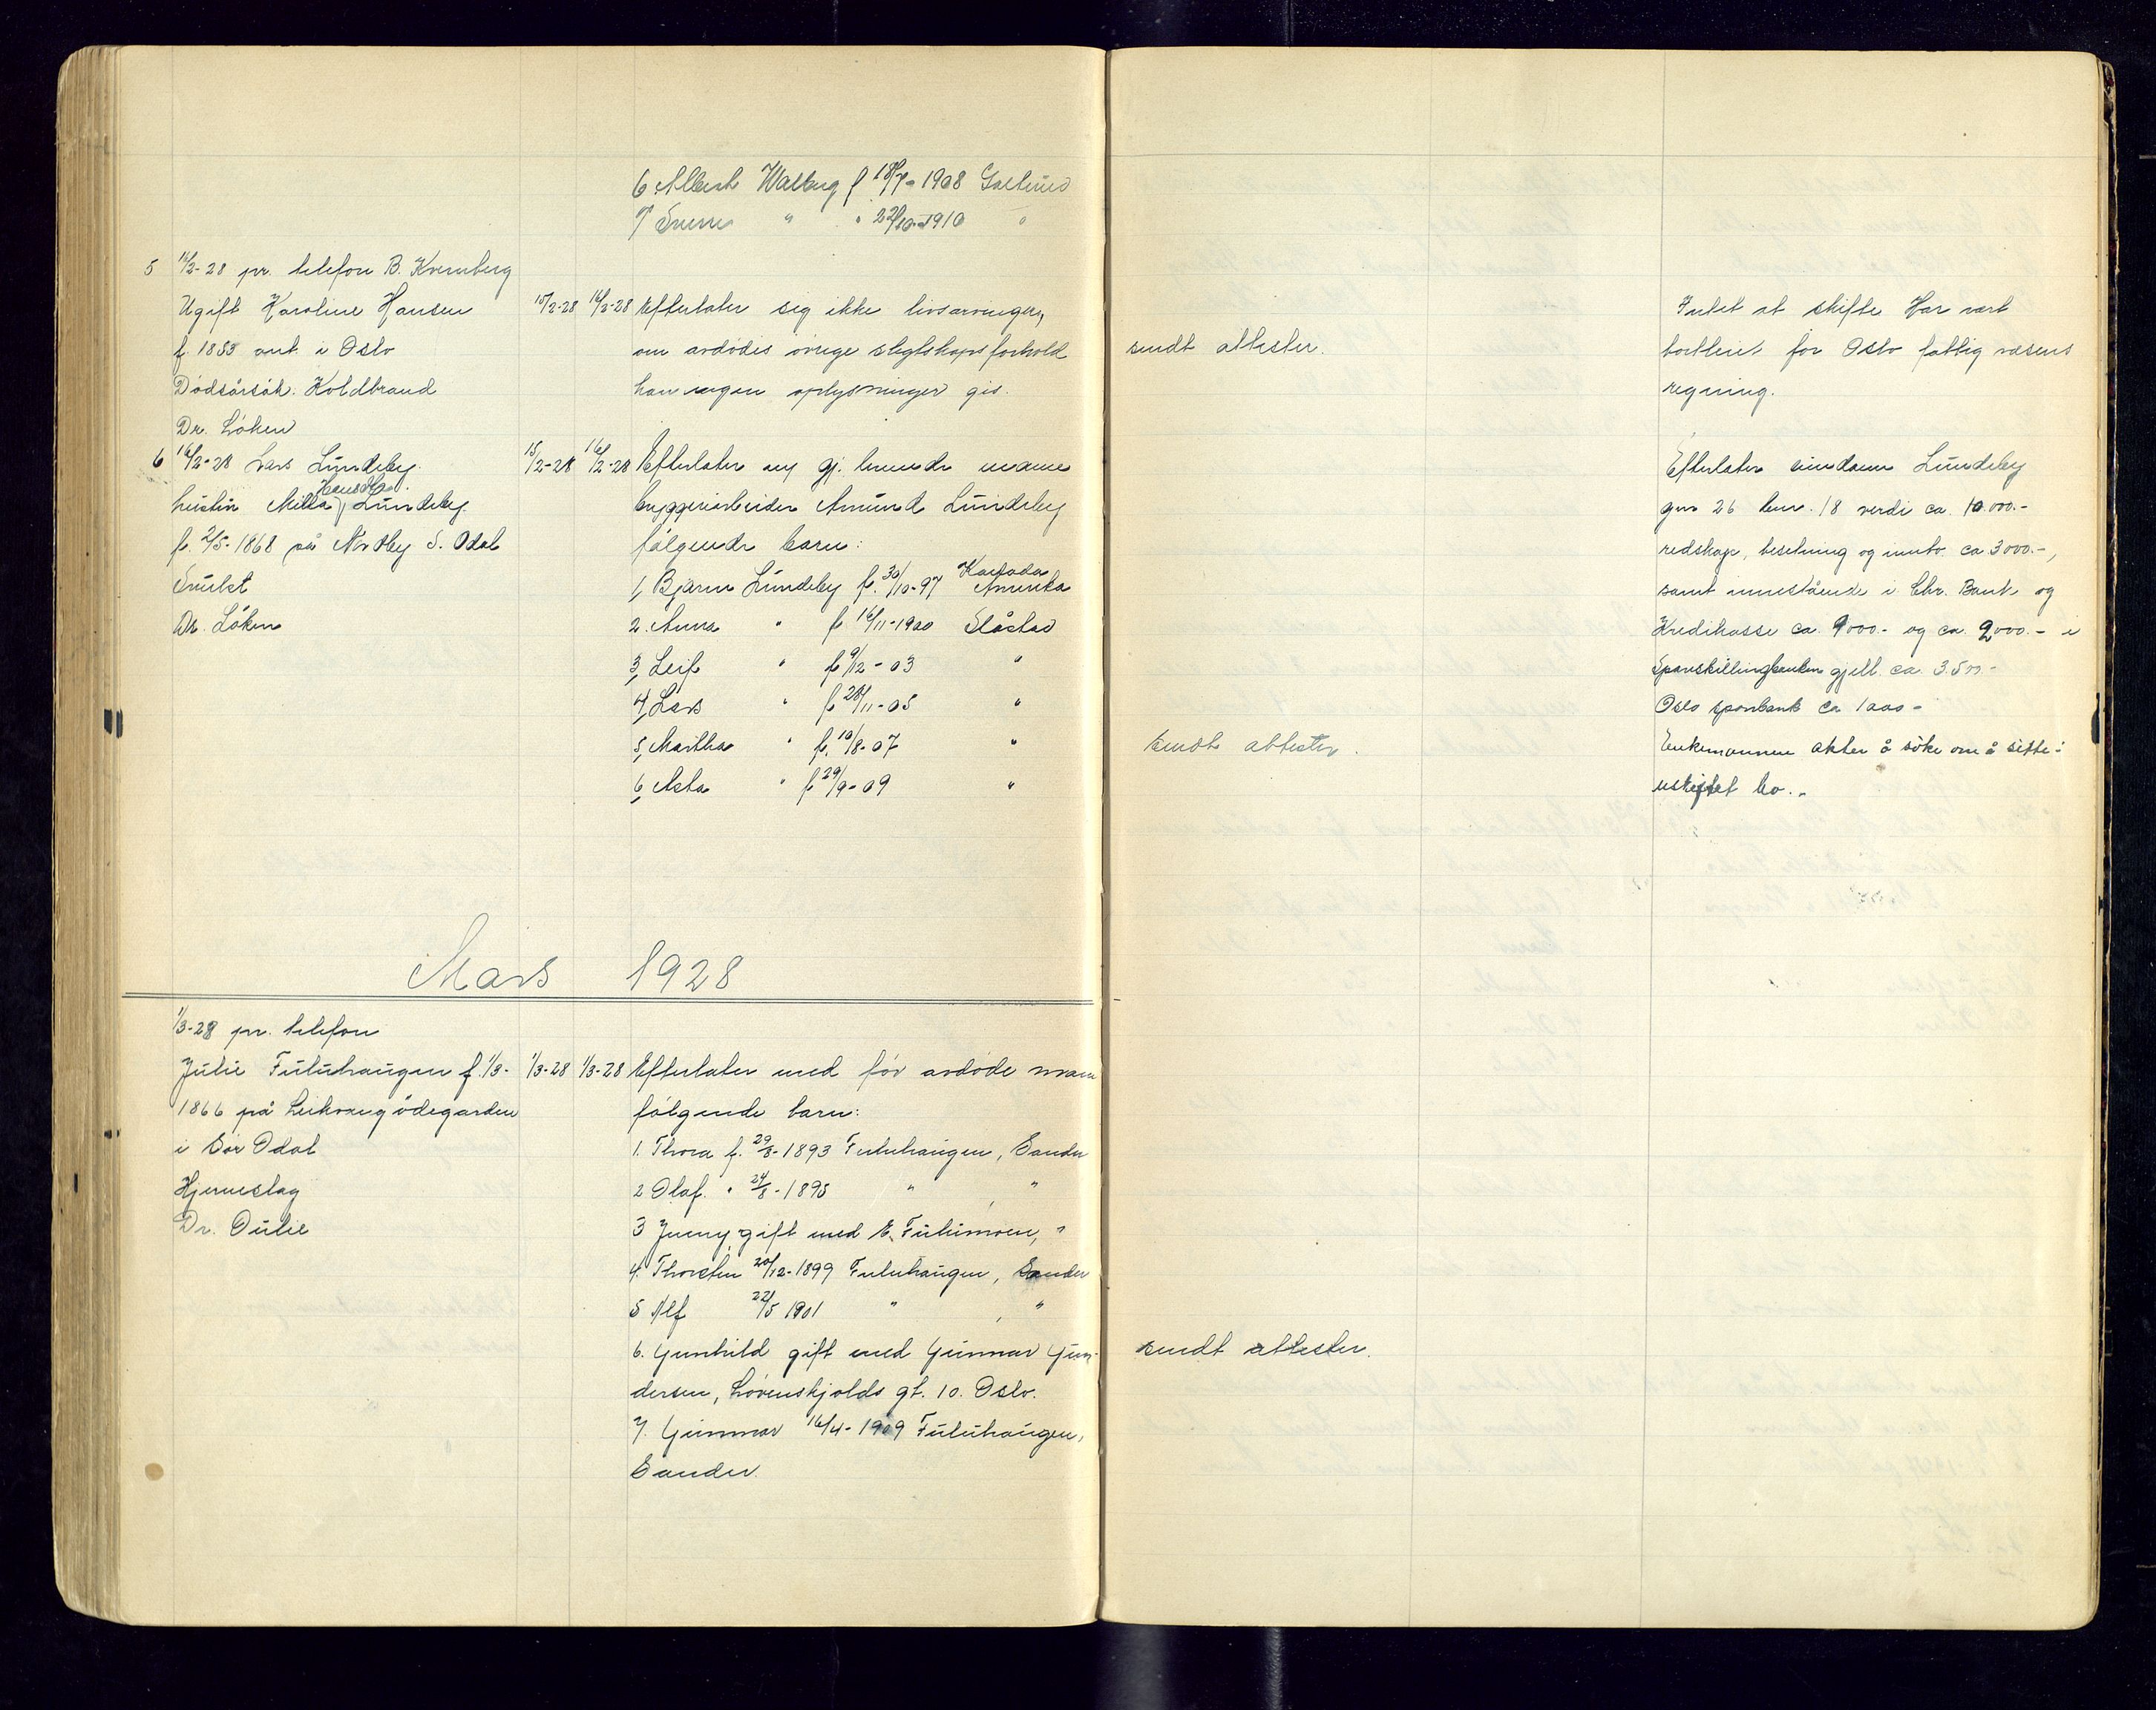 6 Albert Walberg f 18/7-1908 Galterud
7 Sverre " " 22/10-1910 "
5 16/2-28 pr. telefon B. Kvernberg
Ugift Karoline Hansen 15/2-28 16/2-28 Efterlater sig ikke livsarvinger,
f. 1853 ant. i Oslo om avdödes övrige slegtskapsforhold
Dödsårsåk. Koldbrand kan ingen oplysninger gis.
Dr. Löken
sendt attester.
Intet at skifte Har vært
bortleiet for Oslo fattigvæsens
regning.
6 16/2-28 Lars Lundeby. 15/2-28 16/2-28 Efterlater gj. levende mann
hustru Milla Hansdtr. Lundeby byggeriarbeider Amund Lundeby
f. 2/5-1868 på Nordby S. Odal følgende barn:
Dr. Löken
1, Bjarne Lundeby f. 30/10-97 Kanada Amerika
2. Anna " f 16/11-1900 Slåstad
3, Leif " f 9/12-03 "
4, Lars " f 28/11-05 "
5, Martha " f. 10/8-07 "
6, Asta " f 29/9-09 "
sendt attester.
Efterlater eiendom Lundeby
gnr 26 bnr. 18 verdi ca. 10.000.-
redskap, besetning og innbo ca 3000.-,
samt innestående i Chr. Bank og
Kredikasse ca. 9000.- og ca. 2000.- i
Sparskillingbanken gjell. ca. 3.500-
Oslo sparbank ca 1000-
Enkemannen akter å söke om å sitte i
uskiftet bo.
Mars 1928
1/3-28 pr. telefon
Julie Fuluhaugen f. 1/3- 1/3-28 1/3-28 Efterlater med för avdöde mann
1866 på Leikvangödegarden fölgende barn:
i Sör Odal
Hjerneslag
Dr. Dulie
1. Thora f. 29/8-1893 Fuluhaugen, Sander
2 Olaf. " 24/8-1895 " , "
3 Jenny, gift med E. Fulumoen, "
4. Thorsten 20/12-1899 Fuluhaugen, Sander
5 Alf 22/5 1901 " , "
6. Gunhild gift med Gunnar Gun-
dersen, Lövenskjolds gt. 10. Oslo.
7. Gunnar 16/4-1909 Fuluhaugen,
Sander.
sendt attester.